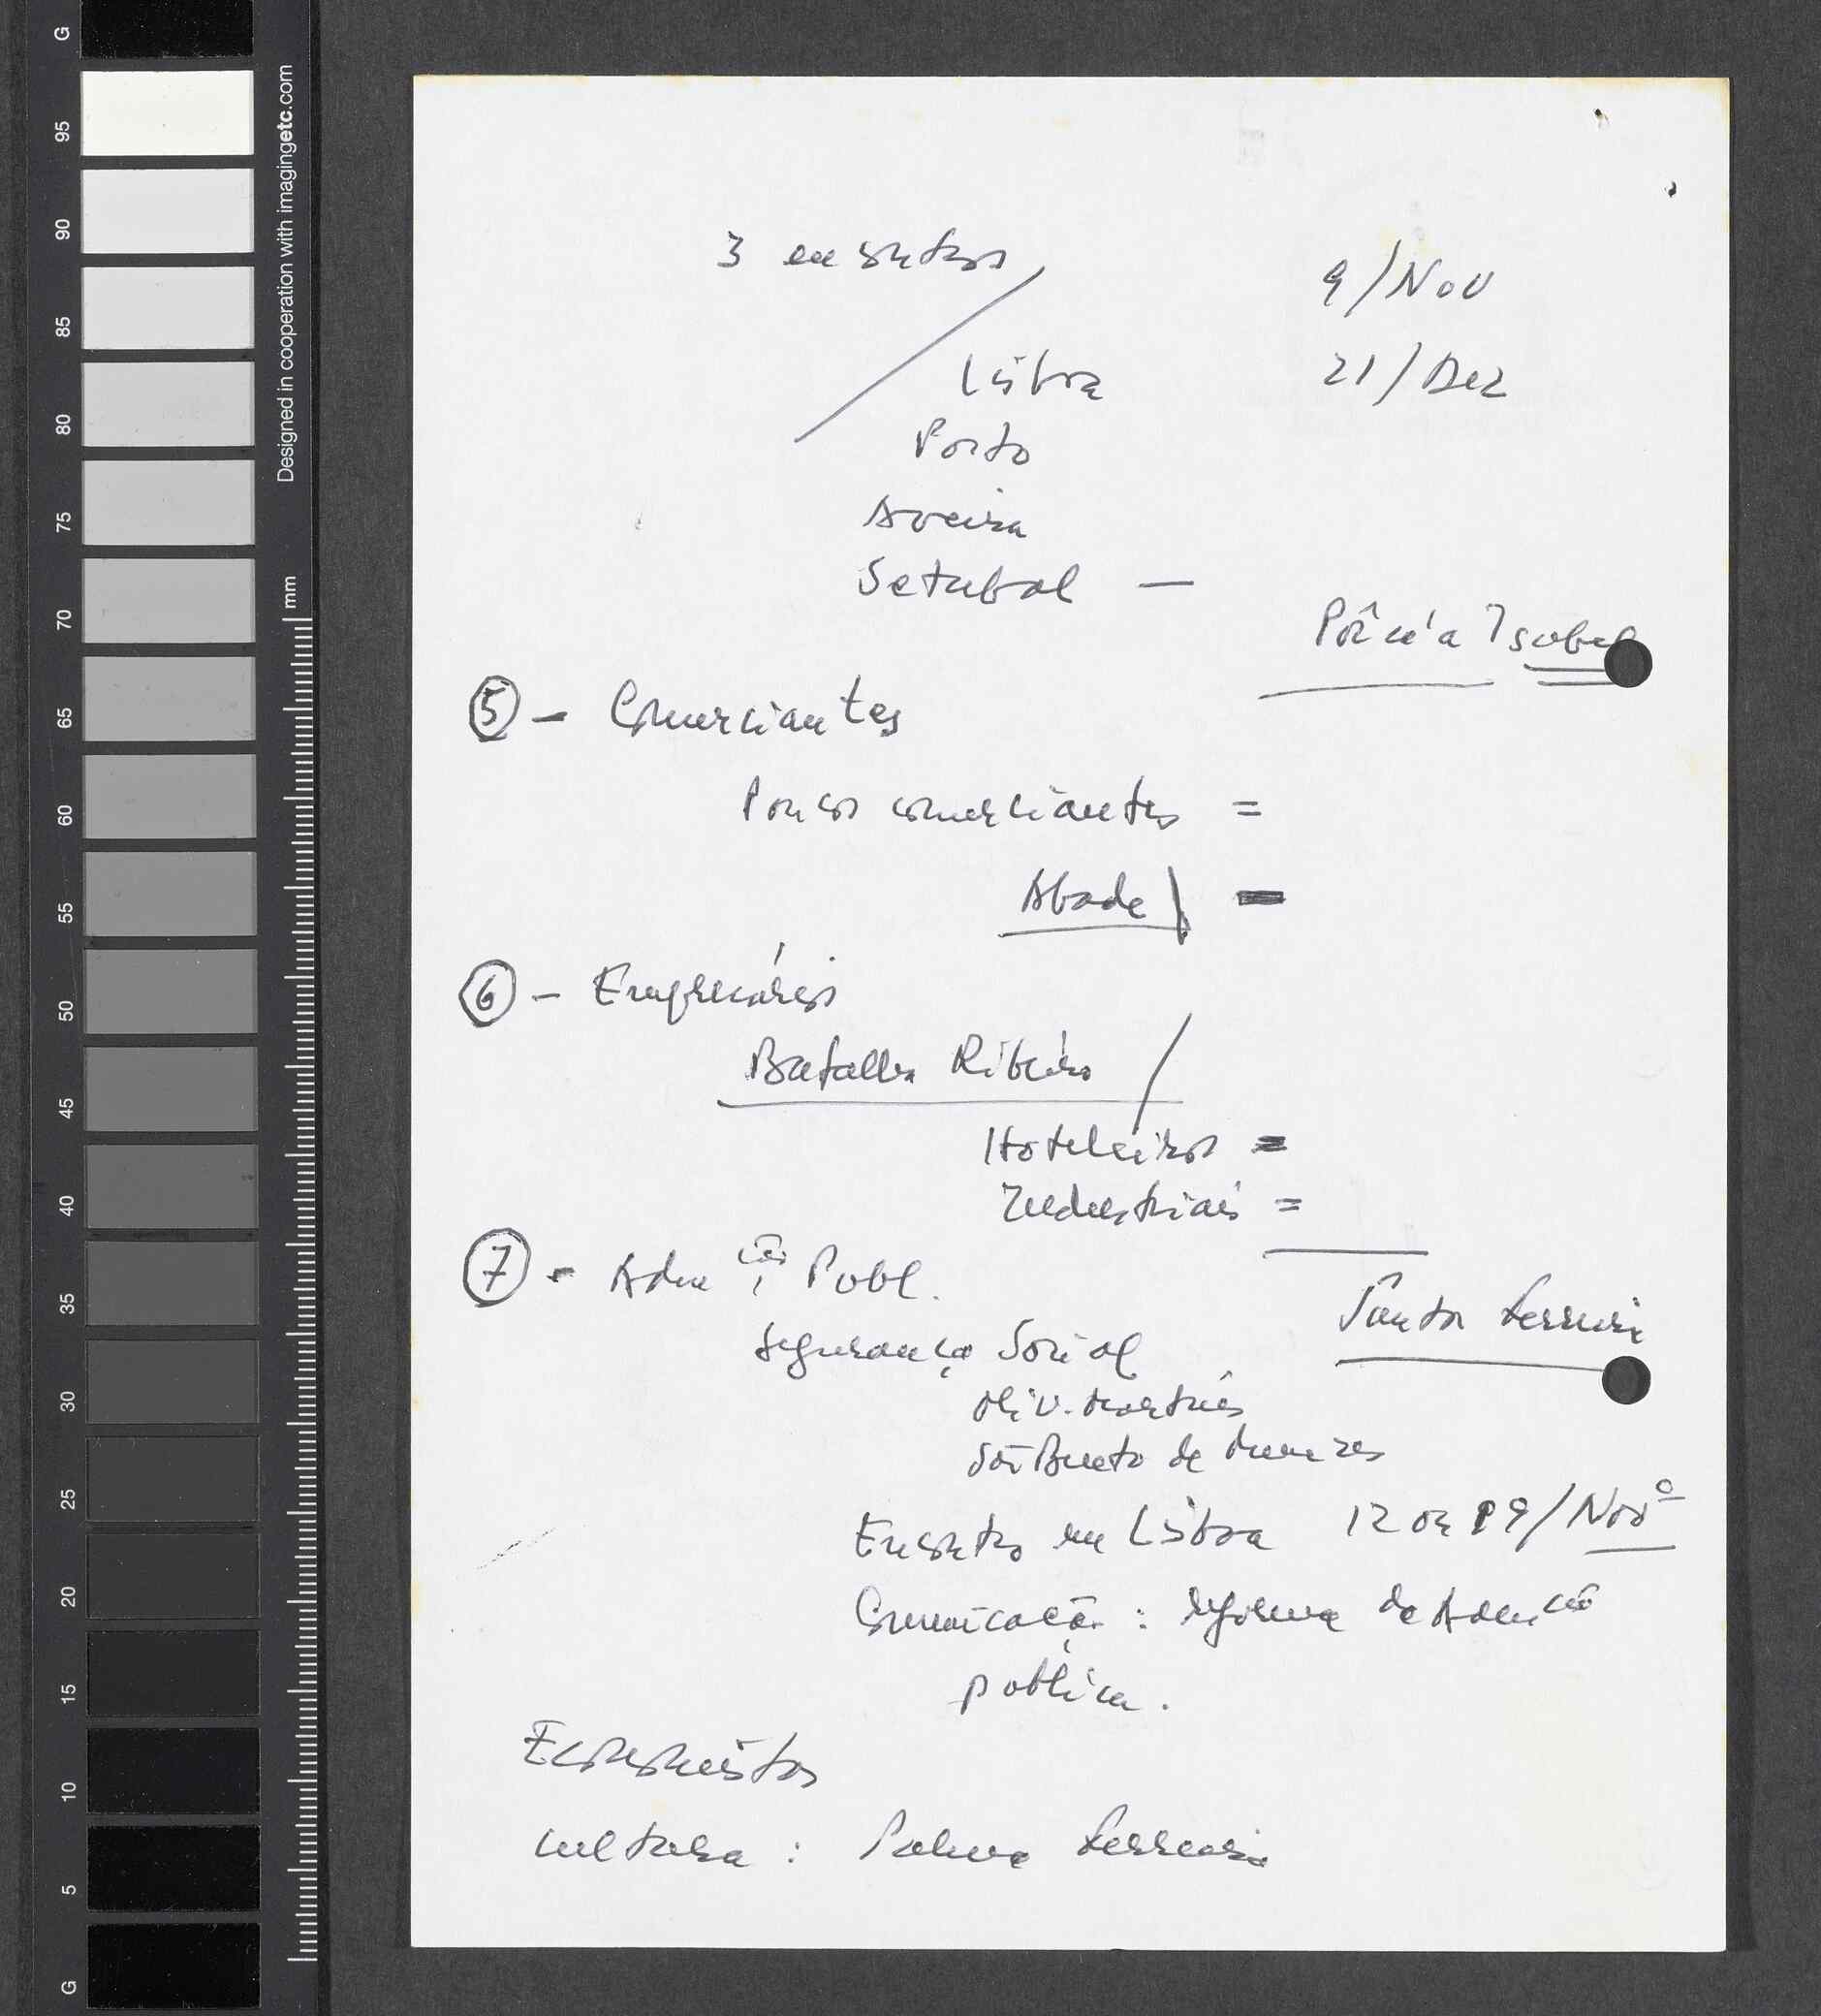 3 encontros
9/Nov
Lisboa
21/Dez
Porto
Aveiro
Setubal —
Isabel
⑤ - Comerciantes
Poucos comerciantes =
Abade
⑥ - Empresários
Batalha Ribeiro /
Hoteleiros =
Industriais =
⑦ - Adm ção Publ.
Santos Ferreira
Segurança Social
Oliv. Martins
Barreto de Menezes
Encontro em Lisboa 12 ou 19/Novº
Comunicação : reforma da Adm. ção
publica.
Economistas
Cultura : Palma Ferreira
G
95
90
85
80
75
70
65
60
55
50
45
40
35
30
25
20
15
10
5
G
Designed in cooperation with imagingetc.com
mm